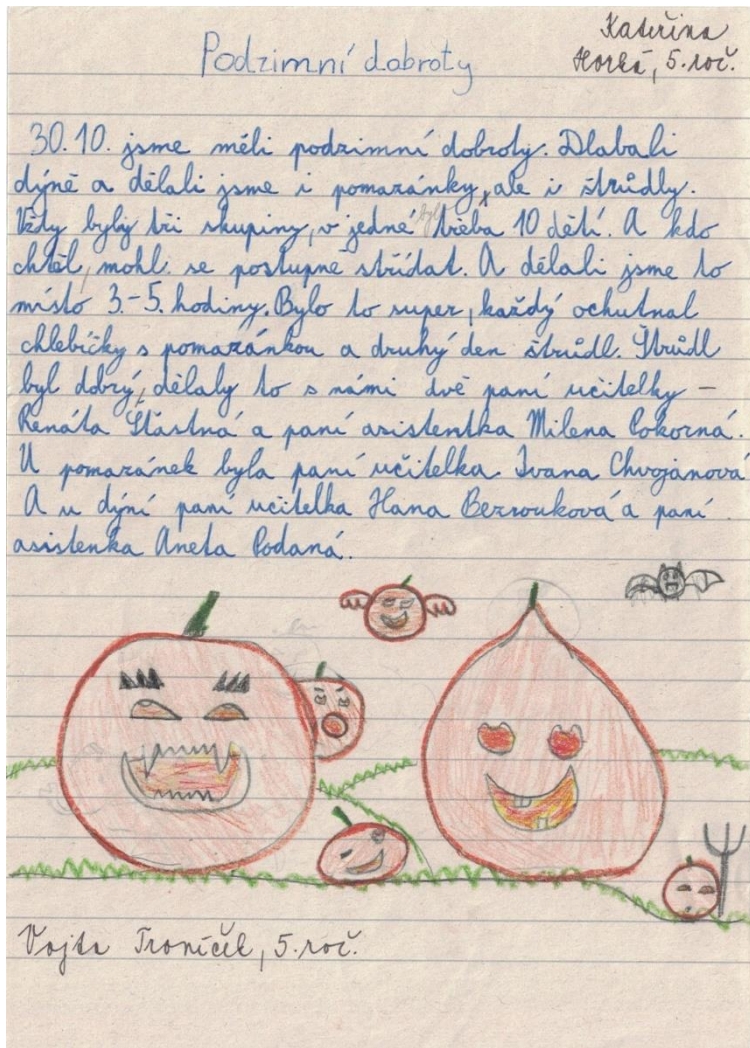 Kateřina
Horká, 5. roč.
Podzimní dobroty
30. 10. jsme měli podzimní dobroty. Dlabali
dýně a dělali jsme i pomazánky, ale i štrůdly.
Vždy byly tři skupiny, v jedné bylo třeba 10 dětí. A kdo
chtěl, mohl se postupně střídat. A dělali jsme to
místo 3.-5. hodiny. Bylo to super, každý ochutnal
chlebíčky s pomazánkou a druhý den štrůdl. Štrůdl
byl dobrý, dělaly to s námi dvě paní učitelky –
Renáta Šťastná a paní asistentka Milena Pokorná.
U pomazánek byla paní učitelka Ivana Chvojanová
A u dýní paní učitelka Hana Bezrouková a paní
asistenka Aneta Podaná.
Vojta 5. roč.